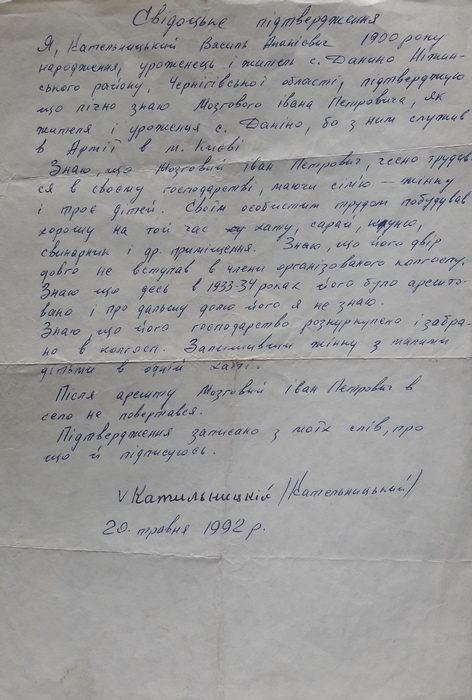 Свідоцьке підтвердження
Я, Кательницький Василь Ананієвич 1900 року
народження, уроженець і житель с. Данино Ніжин-
ського району, Чернігівської області, підтверджую
що лічно знаю Мозгового івана Петровича, як
жителя і уроження с. Даніно, бо з ним служив
в Армії в м. Києві
Знаю, що Мозговий Іван Петрович, чесно трудив
ся в своєму господарстві, маючи сімію – жінку
і троє дітей. Своїм особистим трудом побудував
хорошу на той час хату, сарай, клуню,
свинарник і др. приміщення. Знаю, що його двір
довго не вступав в члени організованого колгоспу.
Знаю що десь в 1933-34 роках його було арешто-
вано і про дальшу долю його я не знаю.
Знаю, що його господарство розкуркулено і забра-
но в колгосп. Залишивши жінку з малими
дітьми в одній хаті.
Після арешту Мозговий Іван Петрович в
село не повертався.
Підтвердження записано з моїх слів, про
що й підписуюсь.
V Катильницкій /Кательницький/
20. травня 1992 р.